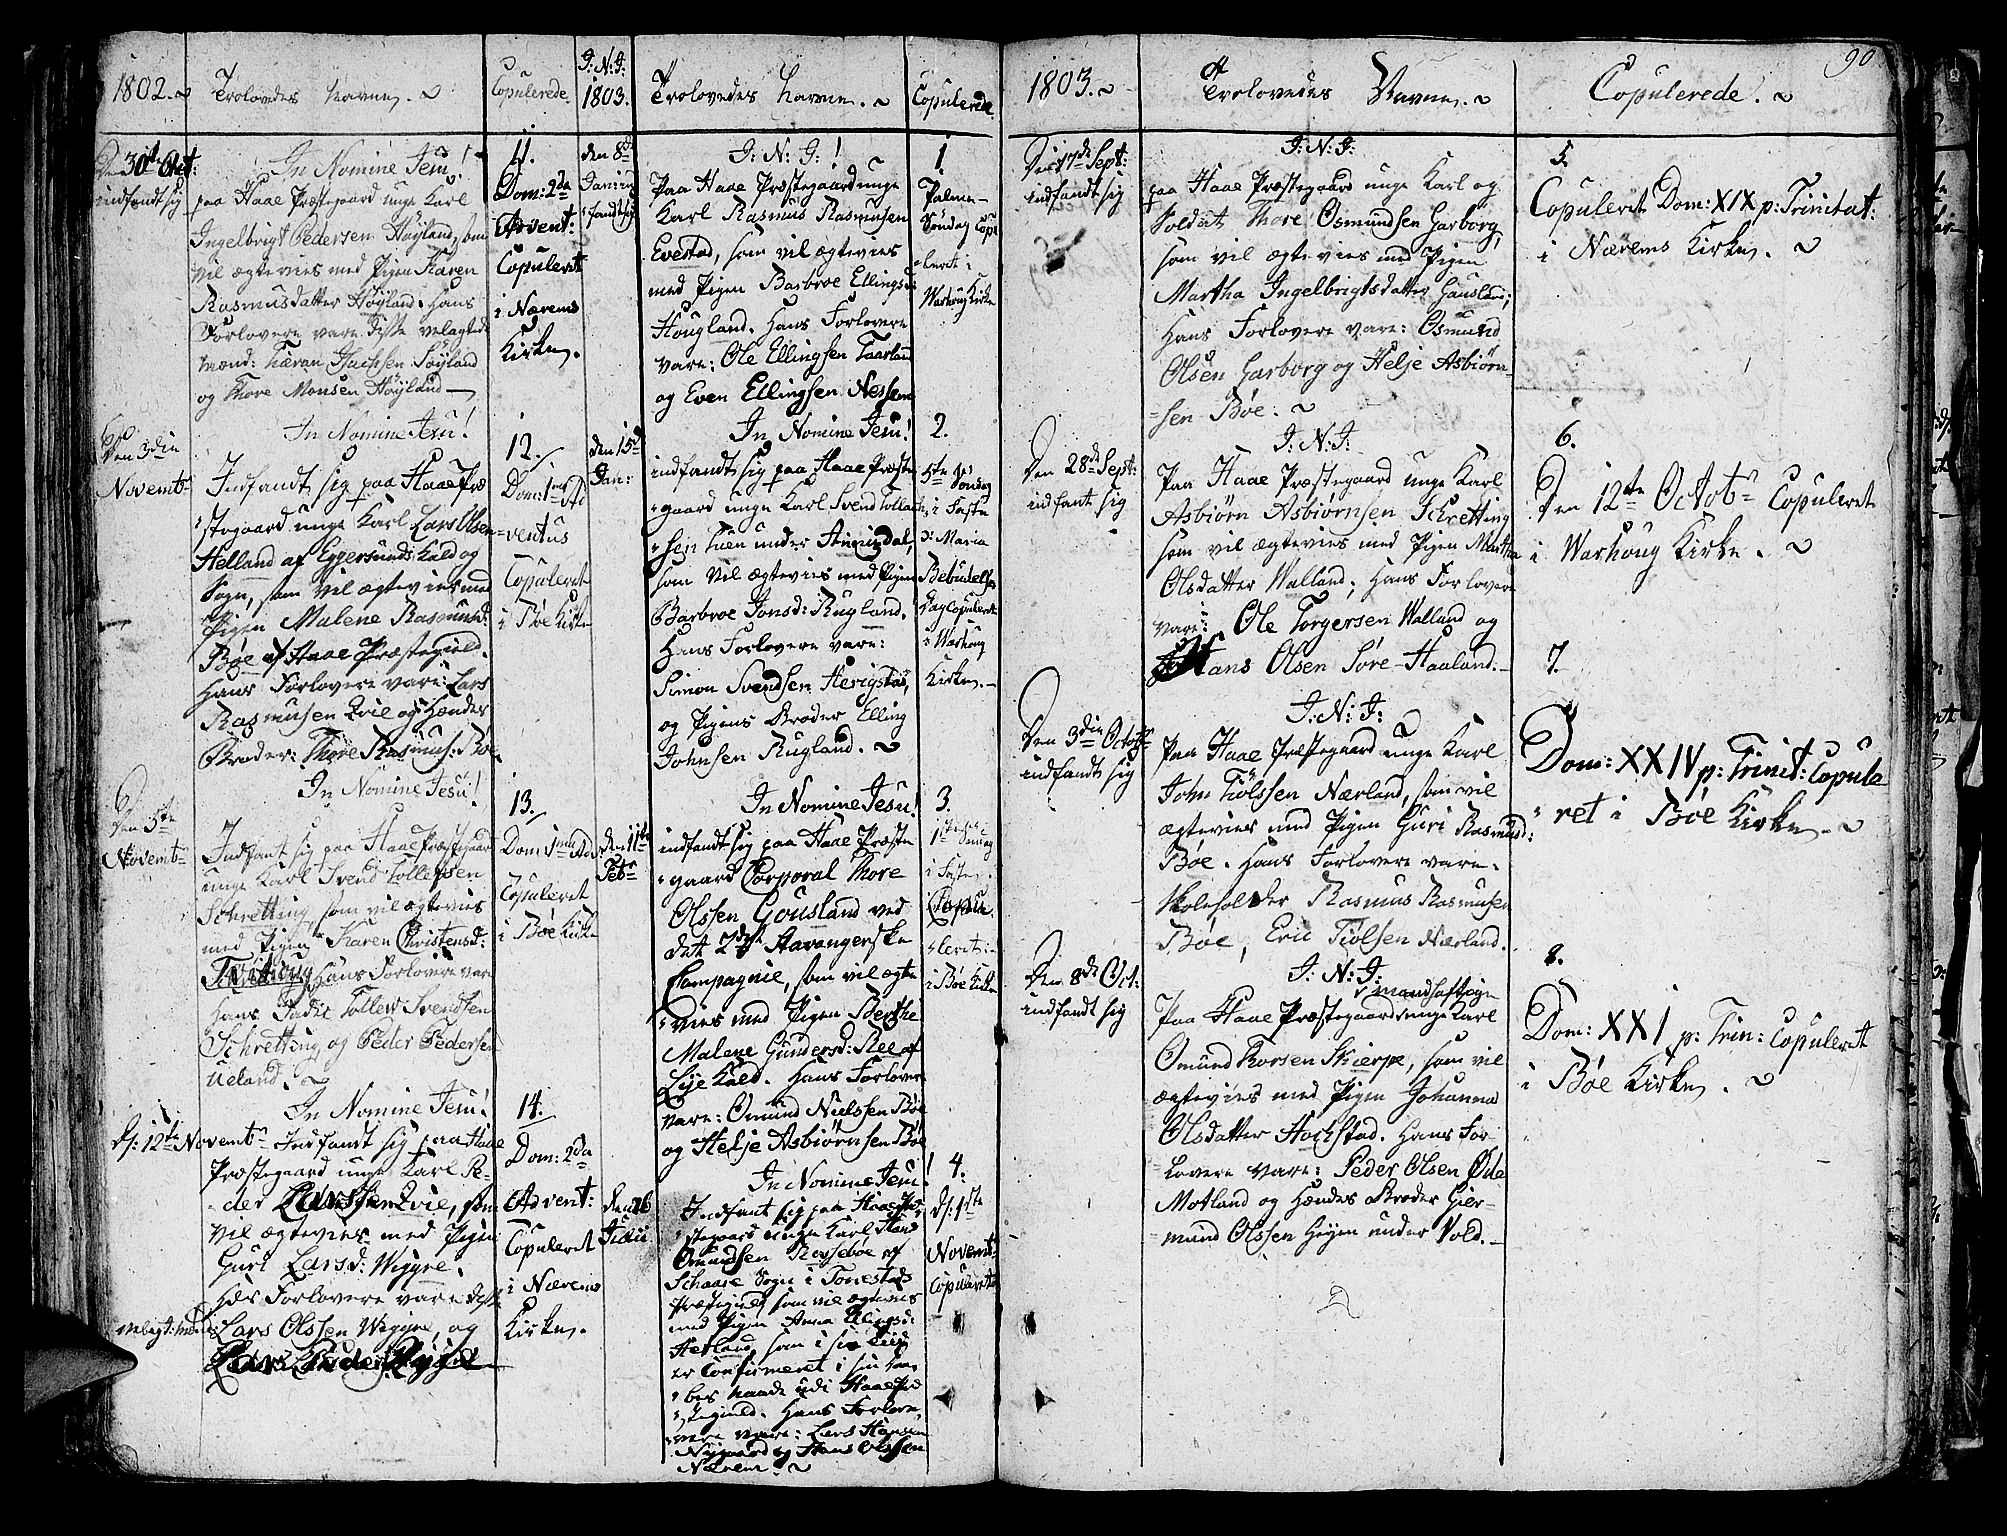 1802.
Trolovedes Navne.
Copulerede.
Den 30te Oct:
indfandt sig
In Nomine Jesu!
paa Haae Præstegaard unge Karl
Ingelbrigt Pedersen Høyland, som
vil ægtevies med Pigen Karen
Rasmusdatter Høyland. Hans
Forlovere vare disse velagtede
Mænd:
og Thore Monsen Høyland
11.
Dom: 2da
Advent:
Copuleret
i Nærems
Kirke.
Den 3die
Novembr
In Nomine Jesu!
Indfandt sig paa Haae Præ
stegaard unge Karl Lars Olsen
Helland af Eggersunds Kald og
Sogn, som vil ægtevies med
Pigen Malene Rasmusd:
Bøe af Haae Præstegield.
Hans Forlovere vare: Lars
Rasmusen Qvie og Hendes
Broder: Thore Rasmus: Bøe
12.
Dom: 1ma Ad
ventus
Copuleret
i Bøe Kirke
Den 5te
Novembr
In Nomine Jesu!
Indfant sig paa Haae Præstegaard
unge Karl Svend Tollefsen
Schretting, som vil ægtevies
med Pigen Karen Christensd:
Hans Forlovere vare
hans Fader Tollew Svendsen
Schretting og Peder Pedersen
Ueland.
13.
Dom: 1ma Adv
Copuleret
i Bøe Kirke
d: 12te Novembr
In Nomine Jesu!
Indfandt sig paa Haae
Præstegaard unge Karl Pe-
der Larssen Qvie, som
vil ægtevies med Pigen
Guri Larsd: Wiggre.
Hds Forlovere vare disse
velagt: Mænd: Lars Olssen Wiggre, og
14.
Dom: 2da
Advent:
Copuleret
i Nærems
Kirke.
I: N: I:
1803.
Trolovedes Navne.
Copulerede
den 8de
Jan: in
fandt sig
I: N: I:!
Paa Haae Præstegaard unge
Karl Rasmus Rasmusen
Evestad, som vil ægtevies
med Pigen Barbroe Ellingsd:
Hougland. Hans Forlovere
vare: Ole Ellingsen Taarland
og Even Ellingsen Nessem
1
Palme-
Søndag Copu
leret i
Warhoug Kirke
den 15de
Jan:
In Nomine Jesu!
indfandt sig paa Haae Præste
gaard unge Karl Svend Tollach
sen Tuen under
som vil ægtevies med Pigen
Barbroe Jonsd: Rugland.
Hans Forlovere vare:
Simon Svendsen Herigstad,
og Pigens Broder Elling
Johnsen Rugland.
2.
5te Søndag
i Faste
Maria
Bebudelses
Dag Copuleret
i Warhoug
Kirke.
den 11te
Febr
In Nomine Jesu!
indfandt sig paa Haae Præste
gaard Corporal Thore
Olssen Gousland ved
det 2det Stavangerske
Compagnie, som vil ægte
vies med Pigen Berthe
Malene Gundersd: Ree af
Lye Kald. Hans Forlovere
vare: Omund Nielssen Bøe
og Helje Asbiørnsen Bøe
3.
1ste Søndag
i Fasten
Copu
leret
i Bøe Kirke
den 26
Julii
In Nomine Jesu!
Indfant sig paa Haae Præ
stegaard unge Karl Hans
Omundsen af
Sogn i
Præstegield, som vil ægtevies
med Pigen Anna Ellingsd:
Hetland, som i sin Tiid
er Confirmeret i sin Daa
bes Naade udi Haae Præ
stegield. Hans Forlo
vere vare: Lars Hansen
Nygaard og Hans Olssen
Nærem.
4.
d: 1ste
Novembr
Copuleret
1803.
Trolovedes Navne.
Copulerede.
90
Den 17de Sept:
indfandt sig
I: N: I:
paa Haae Præstegaard unge Karl og
Soldat Thore Osmundsen Garborg,
som vil ægtevies med Pigen
Martha Ingelbrigtsdatter Hausland;
Hans Forlovere vare: Osmund
Olsen Garborg og Helje Asbiørn-
sen Bøe:
5.
Copuleret Dom: XIX p: Trinitat:
i Nærems Kirke.
Den 28de Sept:
indfant sig
I: N: I:
Paa Haae Præstegaard unge Karl
Asbiørn Asbiørnsen Schretting
som vil ægtevies med Pigen Martha
Olsdatter Walland; Hans Forlovere
vare: Ole Torgersen Walland og
Hans Olsen Søre-Haaland.
6.
Den 12te Octobr Copuleret
i Warhoug Kirke.
Den 3die Octobr
indfandt sig
I: N: I:
Paa Haae Præstegaard unge Karl
John Tiølssen Nærland, som vil
ægtevies med Pigen Guri Rasmusd:
Bøe. Hans Forlovere vare.
Skoleholder Rasmus Rasmusen
Bøe, Eric Tiølsen Nærland.
7.
Dom: XXIV p: Trinit: Copule
ret i Bøe Kirke.
Den 8de Oct:
indfandt sig
I: N: I:
Paa Haae Præstegaard unge Karl
Omund Torsen Skierpe, som vil
ægtevies med Pigen Johanna
Olsdatter Hochstad. Hans For-
lovere vare: Peder Olsen Øde
Motland og Hendes Broder Gier-
mund Olssen Høyen under Vold.
8.
Dom: XXI p: Trin: Copuleret
i Bøe Kirke.